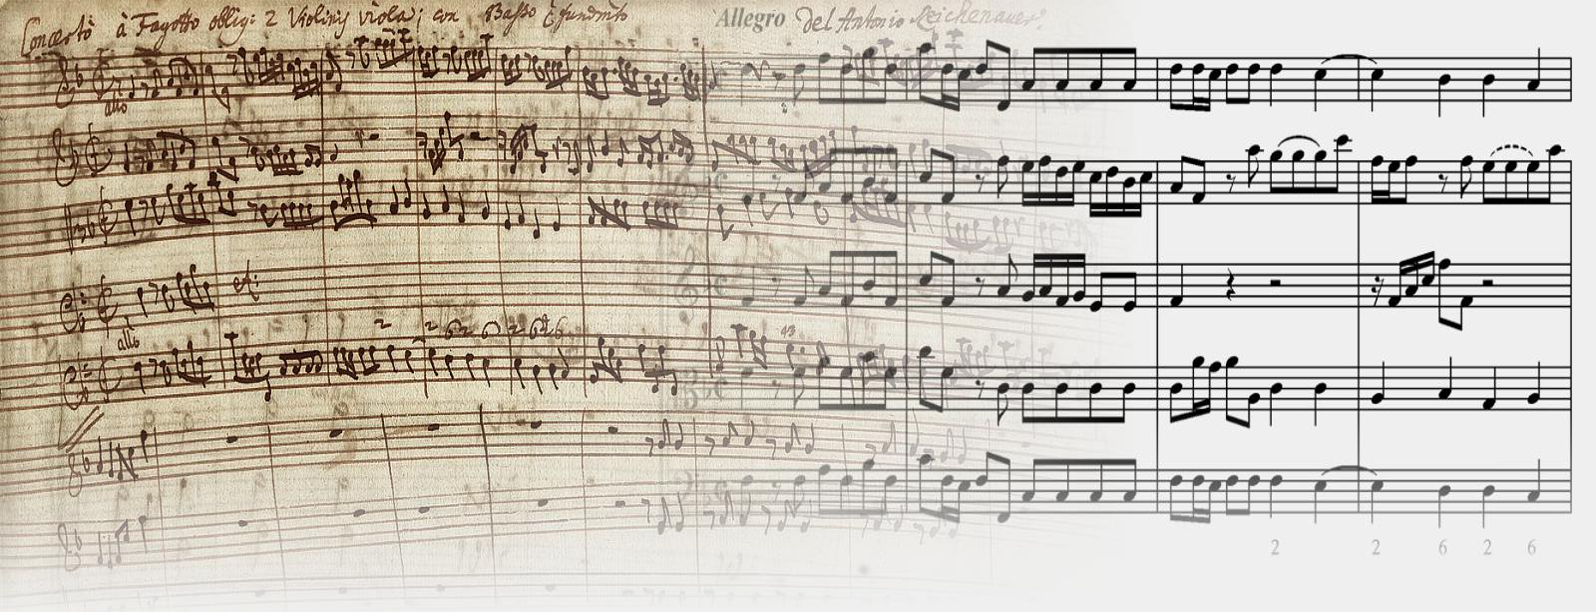 Concerto à Fagotto oblig: 2 Violinij viola; con Basso è fundmto Allegro del Antonio Reichenauer:
allo
et:
allo
2 2 6 2 6 2 6 4 6 43
2 2 6 2 6